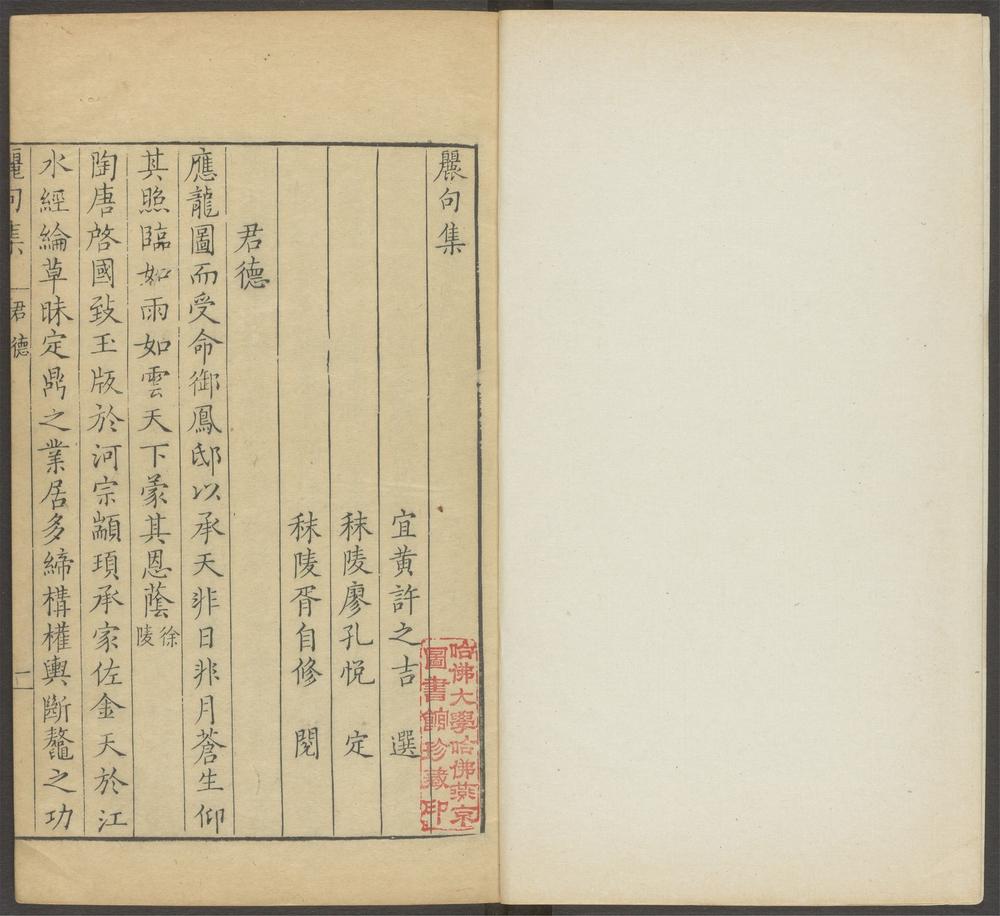 麗句集
宜黄許之吉　選
秣陵廖孔悅　定
秣陵胥自修　閱
君德
應龍圖而受命御鳳邸以承天非日非月蒼生仰
其照臨如雨如雲天下蒙其恩蔭徐陵
陶唐啓國致玉版於河宗顓頊承家佐金天於江
水經綸草昧定鼎之業居多締構權輿斷鼇之功
麗句集
君德
一
哈佛大學哈佛燕京
圖書館珍藏印